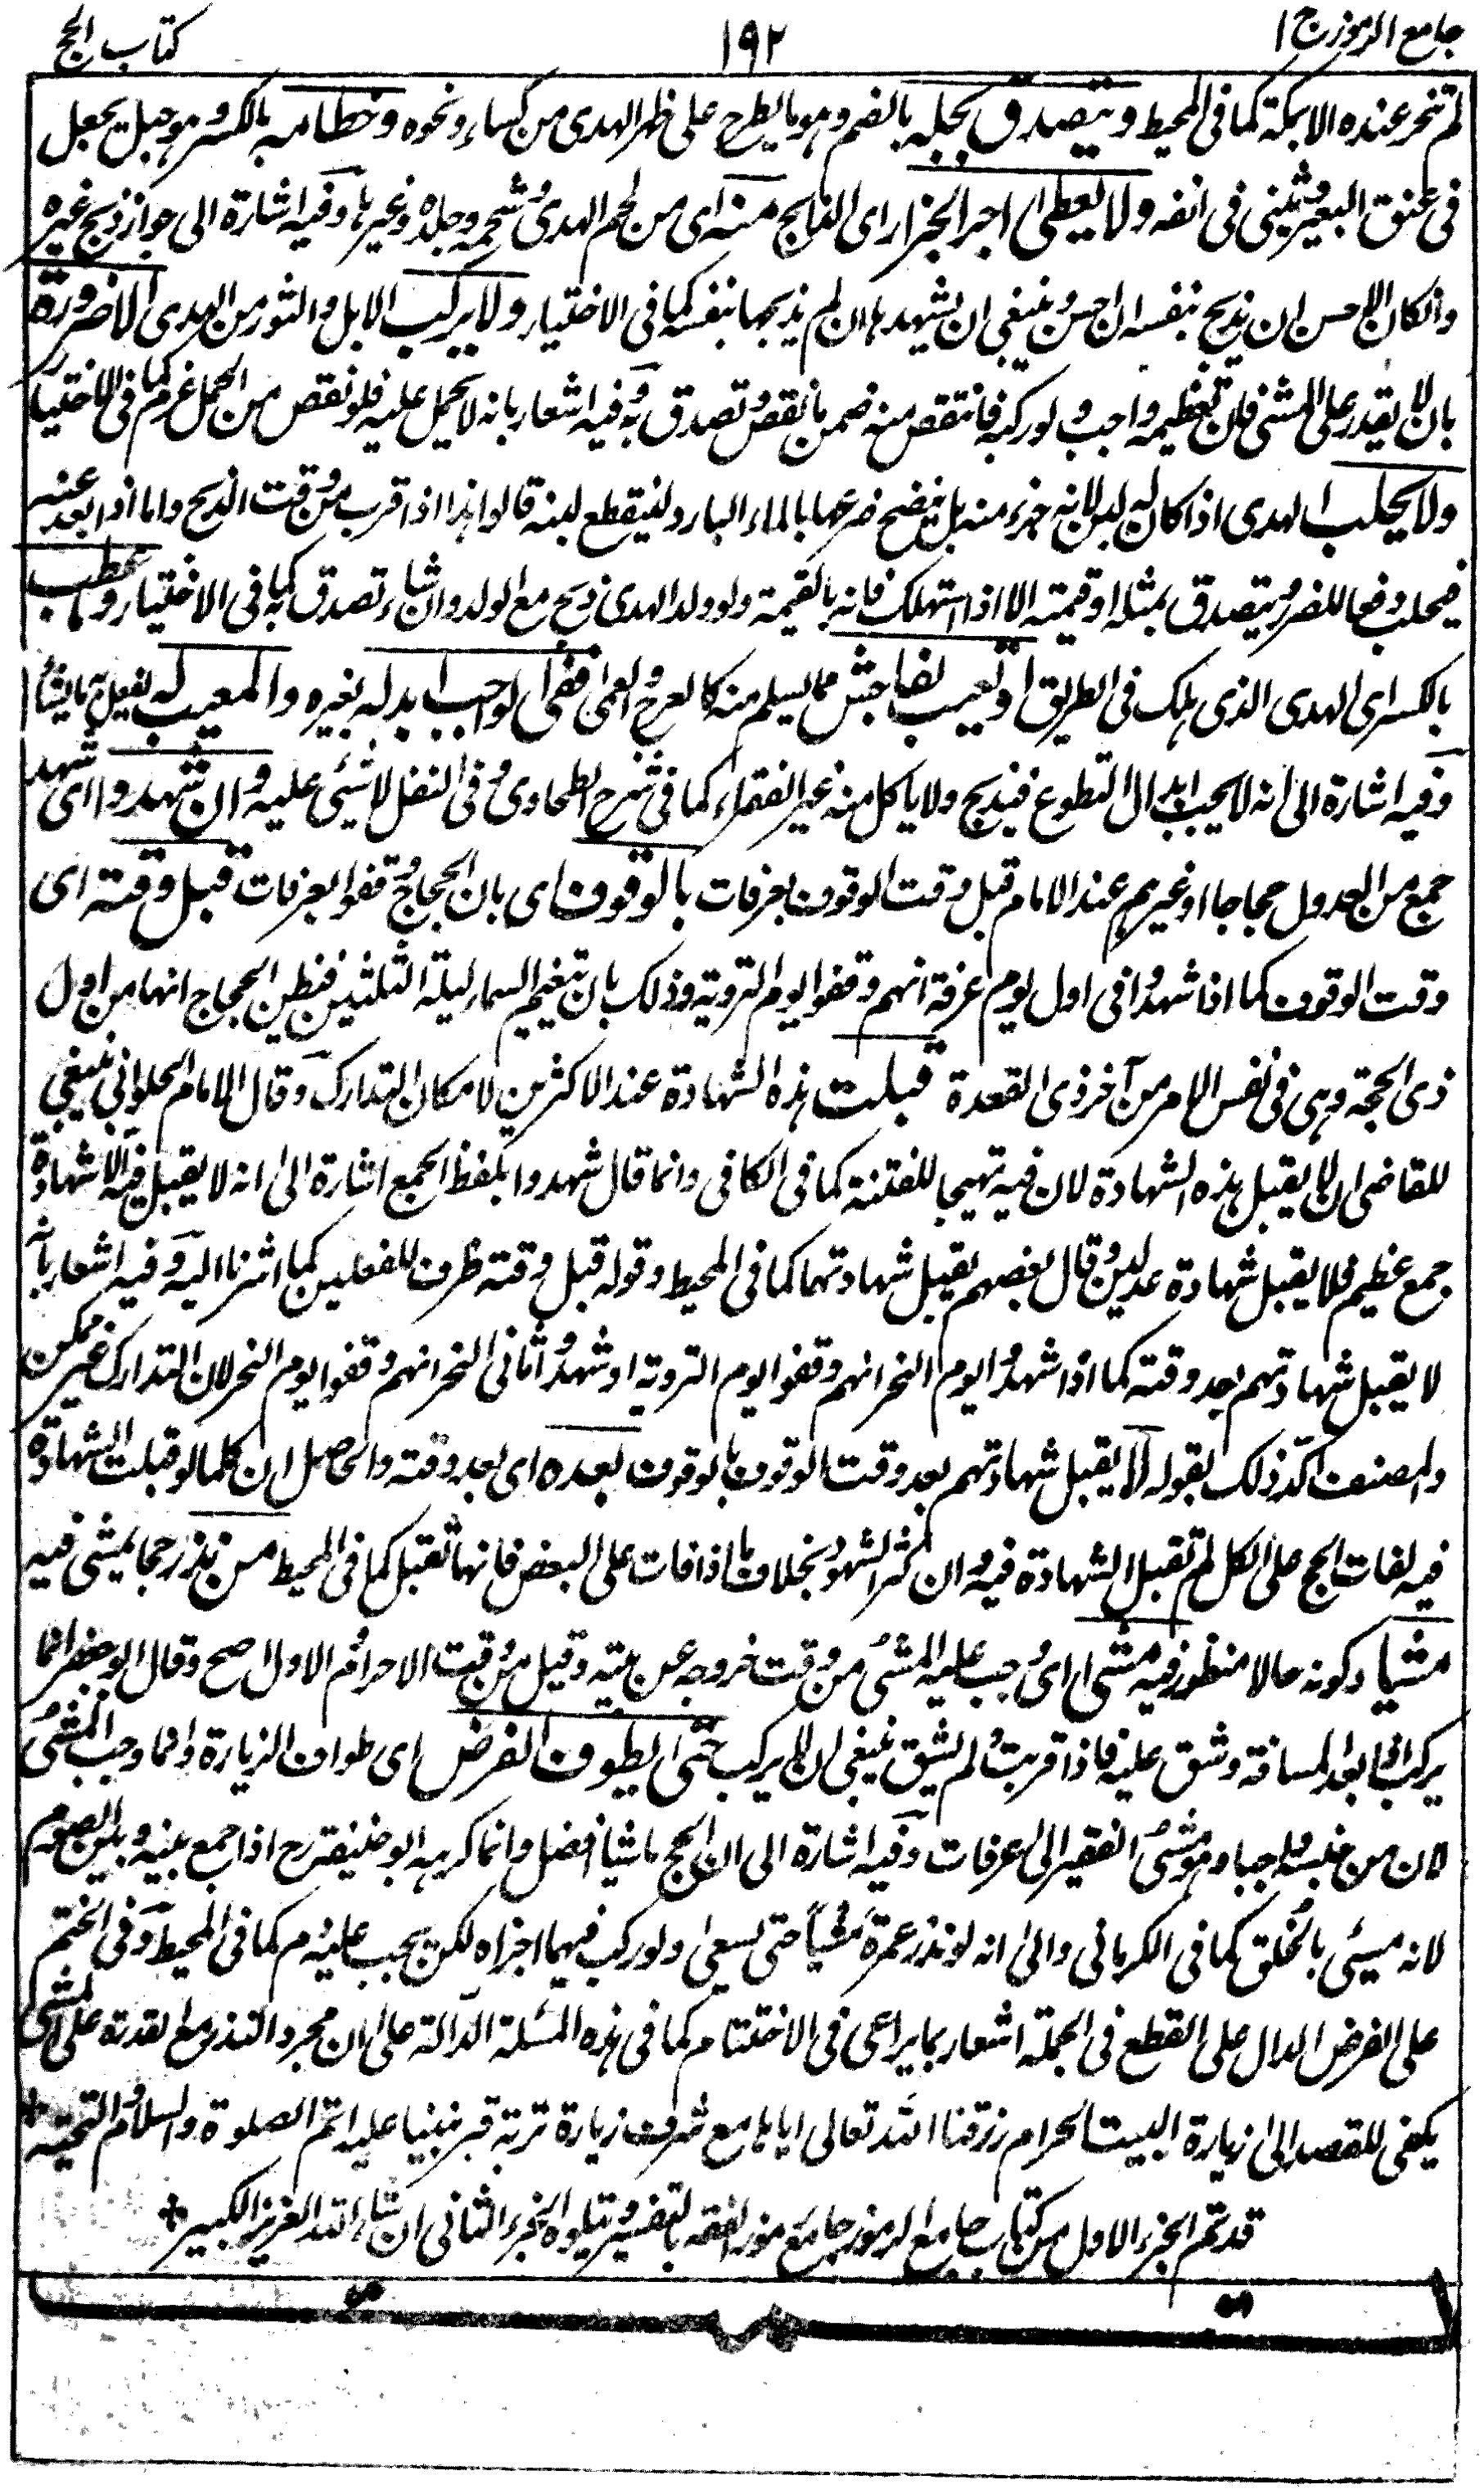 جامع الرموز ج ١
١٩٢
كتاب الحج
لم تنحر عنده الا بمكة كما فى المحيط ويتصدق بجله بالضم وهو ما يطرح على ظهر الهدى من كساء ونحوه وخطامه بالكسر وهو حبل يجعل
فى عنق البعير ويثنى فى انفه ولا يعطى اجر الجزار اى الذابح منه اى من لحم الهدى وشحمه وجلده وغيرها وفيه اشارة الى جواز ذبح غيره
وانكان الاحسن ان يذبح بنفسه ان احسن وينبغى ان يشهدها ان لم يذبحها بنفسه كما فى الاختيار ولا يركب الابل والثور من الهدى الا ضرورة
بان لا يقدر على المشى فان تعظيمه واجب ولو ركبه فانتقص منه ضمن ما نقص وتصدق به وفيه اشعار بانه لا يحمل عليه فلو نقص من الحمل غرم كما فى الاختيار
ولا يحلب الهدى اذا كان له لبن لانه جزء منه بل ينضح ضرعها بالماء البارد لينقطع لبنه قالوا هذا اذا قرب من وقت الذبح واما اذا بعد عنه
فيحلب دفعا للضرر ويتصدق بمثله او قيمته الا اذا استهلك فانه بالقيمة ولو ولد الهدى ذبح مع الولد وان شاء تصدق به كما فى الاختيار وما عطب
بالكسر اى الهدى الذى هلك فى الطريق او تعيب بفاحش مما يسلم منه كالعرج والعمى ففى الواجب ابدله بغيره والمعيب له يفعل به ما يشاء
وفيه اشارة الى انه لا يجب ابدال التطوع فيذبح ولا ياكل منه غير الفقراء كما فى شرح الطحاوى وفى النفل لا شئى عليه وان شهدوا اى شهد
جمع من العدول حجاجا او غيرهم عند الامام قبل وقت الوقوف بعرفات بالوقوف اى بان الحجاج وقفوا بعرفات قبل وقته اى
وقت الوقوف كما اذا شهدوا فى اول يوم عرفة انهم وقفوا يوم التروية وذلك بان تغيم السماء ليلة الثلثين فظن الحجاج انها من اول
ذى الحجة وهى فى نفس الامر من آخر ذى القعدة قبلت هذه الشهادة عند الاكثرين لامكان التدارك وقال الامام الحلوانى ينبغى
للقاضى ان لا يقبل هذه الشهادة لان فيه تهييجا للفتنة كما فى الكافى وانما قال شهدوا بلفظ الجمع اشارة الى انه لا يقبل فيه الا شهادة
جمع عظيم فلا يقبل شهادة عدلين وقال بعضهم يقبل شهادتهما كما فى المحيط وقوله قبل وقته ظرف للفعلين كما اشرنا اليه وفيه اشعار بانه
لا يقبل شهادتهم بعد وقته كما اذا شهدوا يوم النحر انهم وقفوا يوم التروية او شهدوا ثانى النحر انهم وقفوا يوم النحر لان التدارك غير ممكن
والمصنف اكد ذلك بقوله لا يقبل شهادتهم بعد وقت الوقوف بالوقوف بعده اى بعد وقته والحاصل ان كلما لو قبلت الشهادة
فيه لفات الحج على الكل لم تقبل الشهادة فيه وان كثر الشهود بخلاف ما اذا فات على البعض فانها تقبل كما فى المحيط من نذر حجا يمشى فيه
مشيا وكونه حالا منظور فيه مشى اى وجب عليه المشى من وقت خروجه عن بيته وقيل من وقت الاحرام والاول اصح وقال ابو جعفر انما
يركب اذا بعد المسافة وشق عليه فاذا قربت ولم يشق ينبغى ان لا يركب حتى يطوف الفرض اى طواف الزيارة وانما وجب المشى
لان من جنسه واجبا وهو مشى الفقير الى عرفات وفيه اشارة الى ان الحج ماشيا افضل وانما كرهه ابو حنيفة رح اذا جمع بينه وبين الصوم
لانه ميسئى بالخلق كما فى الكرمانى والى انه لو نذر عمرة مشيا مشى حتى يسعى ولو ركب فيهما اجزاه لكن يجب عليه دم كما فى المحيط وفى الختم
على الفرض الدال على القطع فى الجملة اشعار بما يراعى فى الاختتام كما فى هذه المسئلة الدالة على ان مجرد النذر مع القدرة على المشى
يكفى للقصد الى زيارة البيت الحرام رزقنا الله تعالى اياها مع شرف زيارة تربة قبر نبينا عليه اتم الصلوة والسلام والتحية
قد تم الجزء الاول من كتاب جامع الرموز جامع رموز الفقه بالتفسير ويتلوه الجزء الثانى ان شاء الله العزيز الكبير